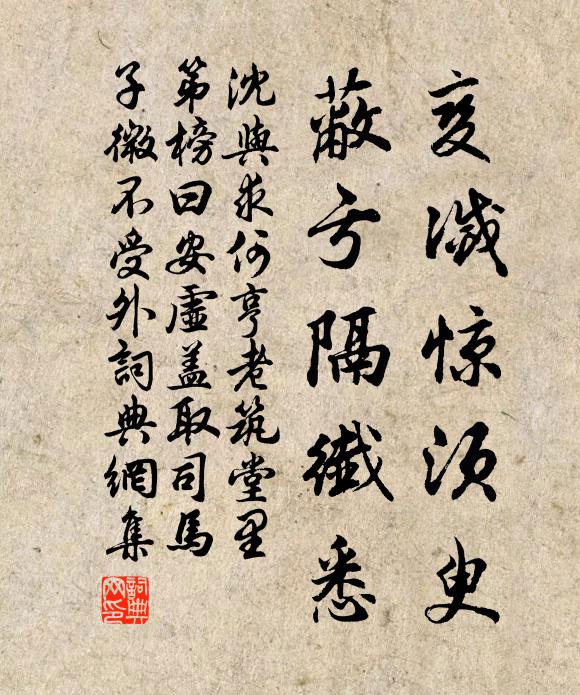 变滅惊须臾
蔽亏隔纖悉
沈與求何亨老筑堂里
第榜曰安虚盖取司馬
子微不受外詞典網集
詞典网印